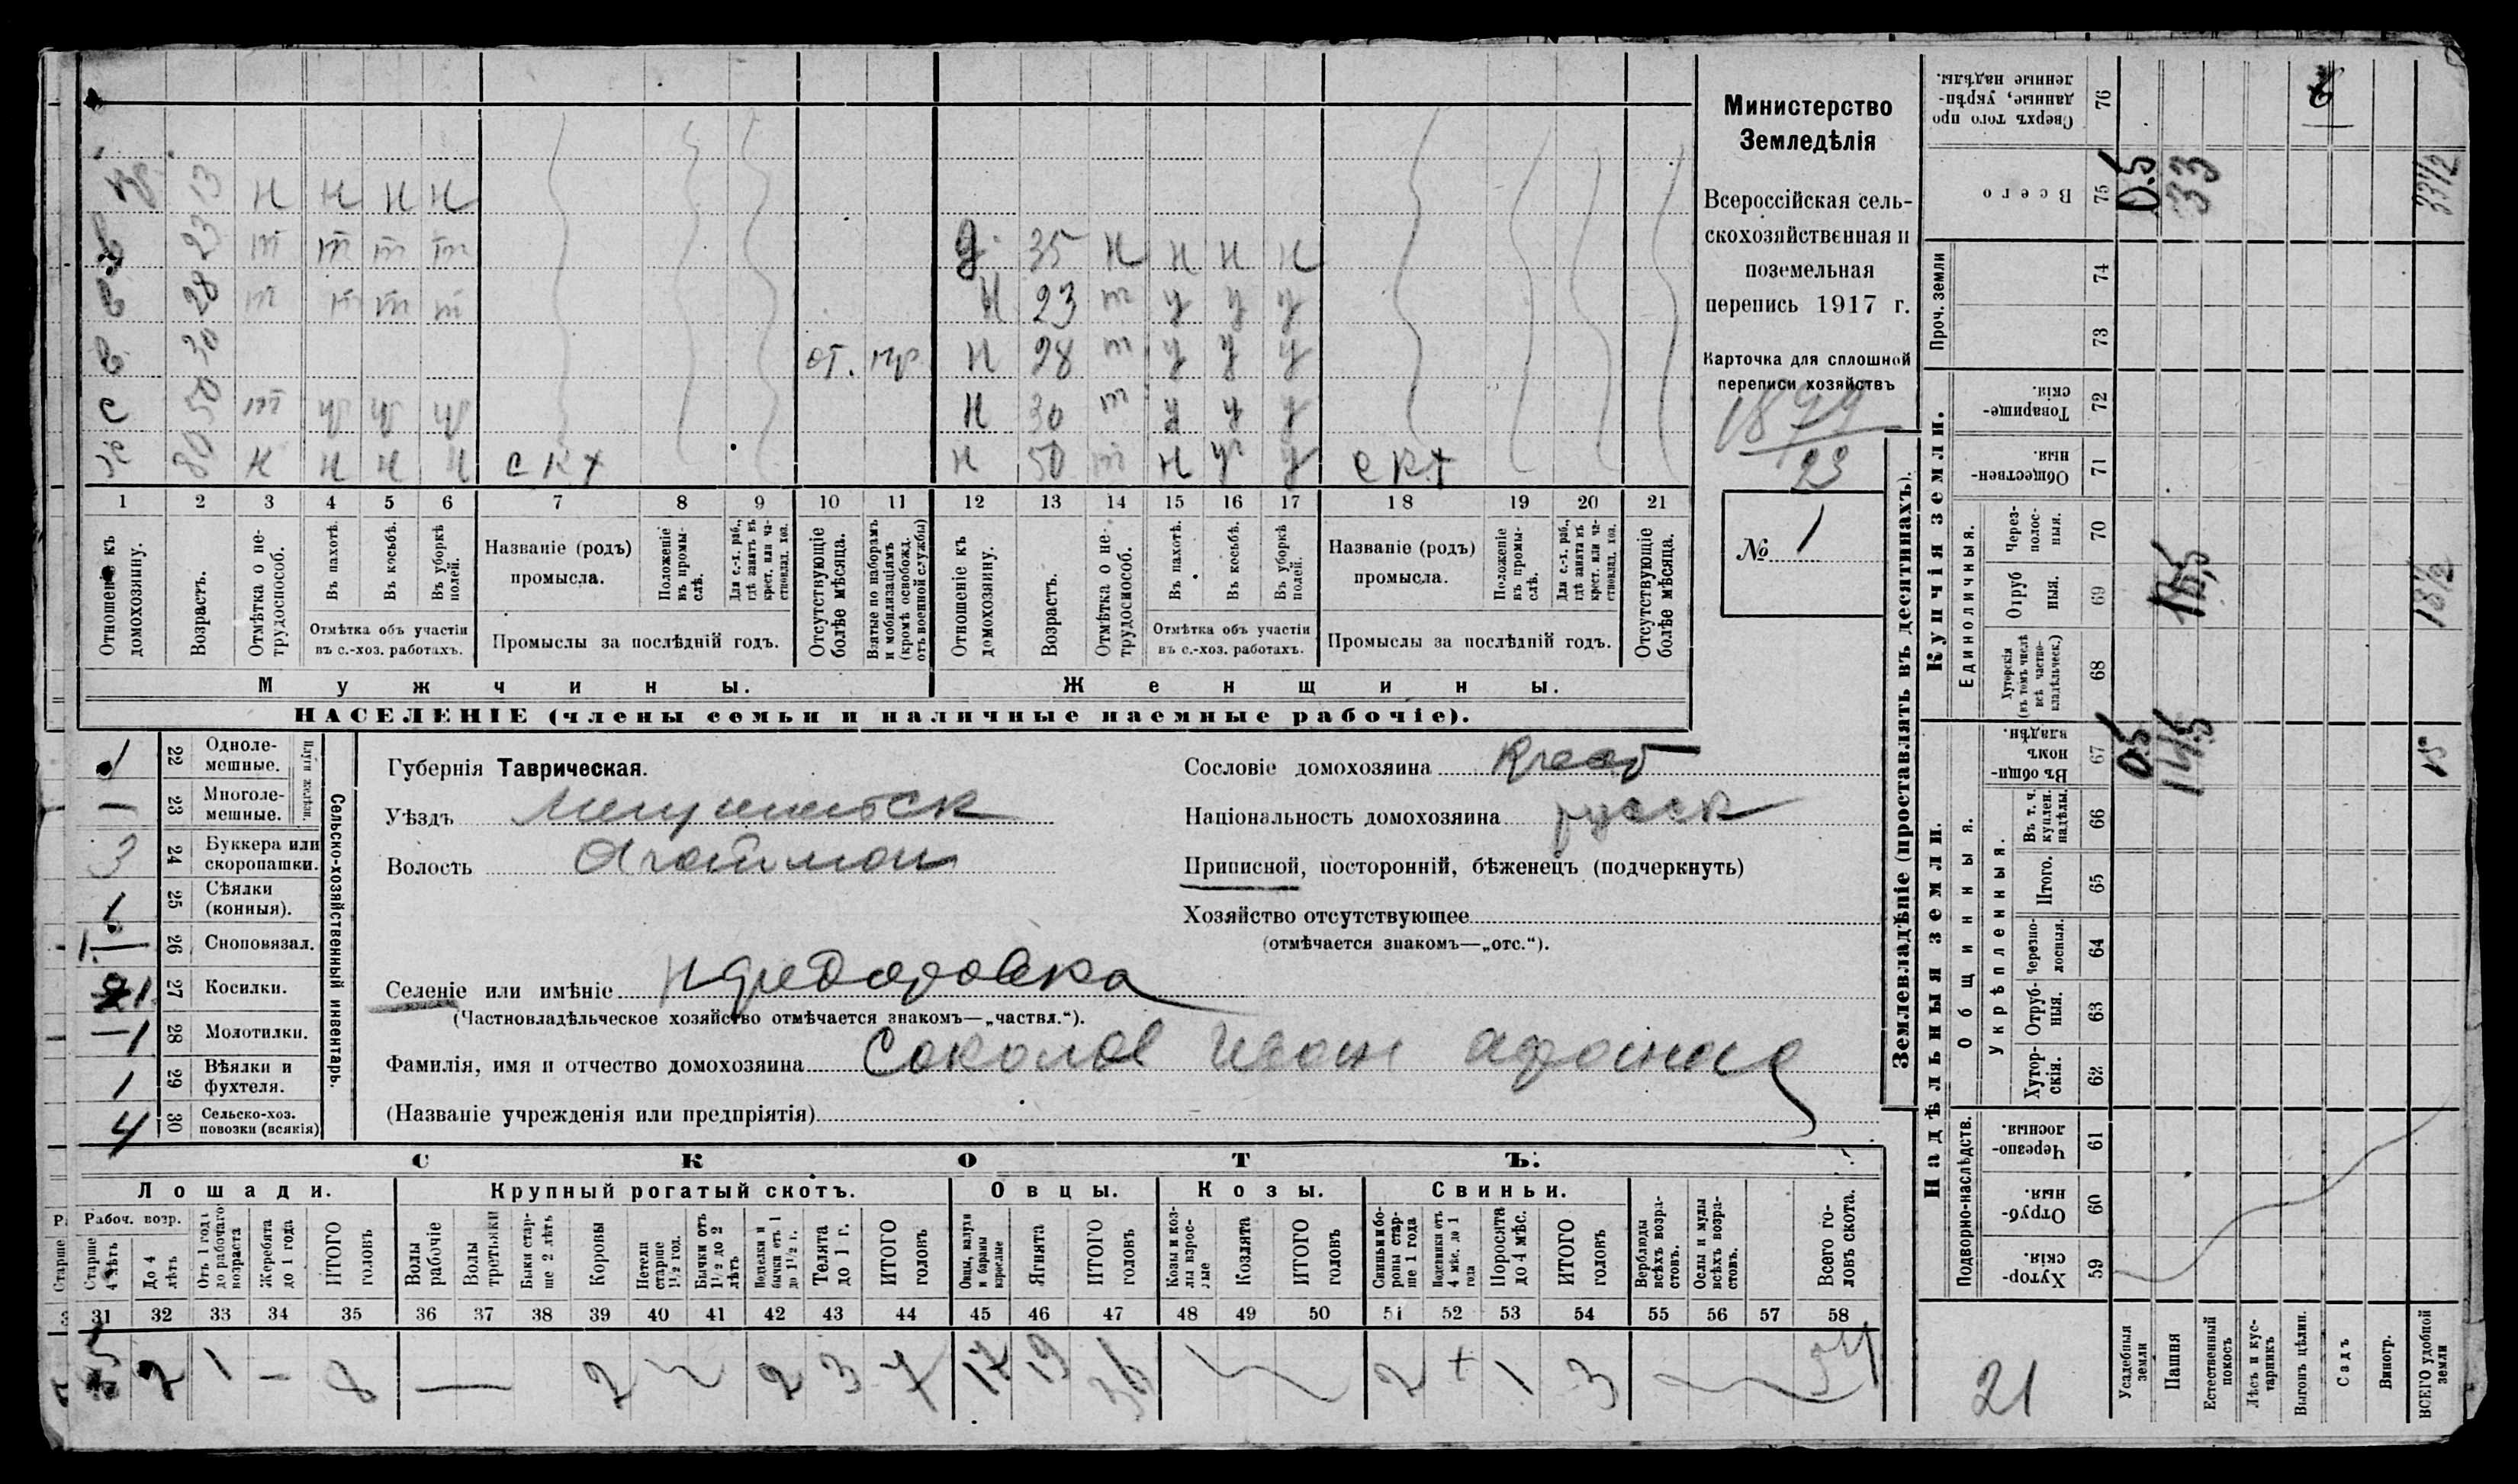 Министерство
Земледѣлія
Всероссійская сель-
скохозяйственная и
поземельная
перепись 1917 г.
Карточка для сплошной
переписи хозяйствъ
23
№ 1
13 н н н н
23 т т т т
28 т т т т
30 от. пр
с 50 т
80 н н н н скт
д. 35 н н н н
н 23 т у у у
н 28 т у у у
н 30 т у у у
н 50 т н у у скт
1 2 3 4 5 6 7 8 9 10 11 12 13 14 15 16 17 18 19 20 21
Отношеніе къ домохозяину.
Возрастъ.
Отмѣтка о не-трудоспособ.
Въ пахотѣ.
Въ косьбѣ.
Въ уборкѣ полей.
Отмѣтка объ участіи
въ с.-хоз. работахъ.
Названіе (родъ)
промысла.
Положеніе въ промы-слѣ.
Для с.-х. раб., гдѣ занятъ въ крест. или ча-стновлад. хоз.
Промыслы за послѣдній годъ.
Отсутствующіе болѣе мѣсяца.
Взятые по наборамъ и мобилизаціямъ (кромѣ освобожд. отъ военной службы)
Отношеніе къ домохозяину.
Возрастъ.
Отмѣтка о не-трудоспособ.
Въ пахотѣ.
Въ косьбѣ.
Въ уборкѣ полей.
Отмѣтка объ участіи
въ с.-хоз. работахъ.
Названіе (родъ)
промысла.
Положеніе въ промы-слѣ.
Для с.-х. раб., гдѣ занята въ крест. или ча-стновлад. хоз.
Промыслы за послѣдній годъ.
Отсутствующіе болѣе мѣсяца.
Мужчины.
Женщины.
НАСЕЛЕНІЕ (члены семьи и наличные наемные рабочіе).
Сельско-хозяйственный инвентарь.
Плуги желѣзн.
1 22 Одноле-мешные.
— 23 Многоле-мешные.
3 24 Буккера или скоропашки.
1 25 Сѣялки (конныя).
26 Сноповязал.
1 27 Косилки.
1 28 Молотилки.
1 29 Вѣялки и фухтеля.
4 30 Сельско-хоз. повозки (всякія)
Губернія Таврическая.
Уѣздъ
Волость
Селеніе или имѣніе
(Частновладѣльческое хозяйство отмѣчается знакомъ—„частвл.“).
Фамилія, имя и отчество домохозяина Соколов Иван
(Названіе учрежденія или предпріятія)
Сословіе домохозяина
Національность домохозяина русск
Приписной, посторонній, бѣженецъ (подчеркнуть)
Хозяйство отсутствующее
(отмѣчается знакомъ—„отс.“).
СКОТЪ.
Лошади.
Крупный рогатый скотъ.
Овцы.
Козы.
Свиньи.
Рабоч. возр.
Старше 4 лѣтъ
До 4 лѣтъ
Отъ 1 года до рабочаго возраста
Жеребята до 1 года
ИТОГО головъ
Волы рабочіе
Волы третьяки
Быки стар-ше 2 лѣтъ
Коровы
Нетели старше 1½ год.
Бычки отъ 1½ до 2 лѣтъ
Нетелки и бычки отъ 1 до 1½ г.
Телята до 1 г.
ИТОГО головъ
Овцы, валухи и бараны взрослые
Ягнята
ИТОГО головъ
Козы и коз-лы взрос-лые
Козлята
ИТОГО головъ
Свиньи и бо-ровы стар-ше 1 года
Подсвинки отъ 4 мѣс. до 1 года
Поросята до 4 мѣс.
ИТОГО головъ
Верблюды всѣхъ возра-стовъ.
Ослы и мулы всѣхъ возра-стовъ.
Всего го-ловъ скота.
31 32 33 34 35 36 37 38 39 40 41 42 43 44 45 46 47 48 49 50 51 52 53 54 55 56 57 58
5 2 1 — 8 — 2 2 3 7 17 19 36 2 + 1 3 54
Землевладѣніе (проставлять въ десятинахъ).
Надѣльныя земли.
Купчія земли.
Проч. земли
Подворно-наслѣдств.
Общинныя.
Укрѣпленныя.
Единоличныя.
Сверхъ того про данные, укрѣп-ленные надѣлы. 76
Всего 75 0.5 33 33½
74
73
Товарище-скія. 72
Обществен-ныя. 71
Через-полос-ныя. 70
Отруб ныя. 69 18,5 18½
Хуторскія (въ томъ числѣ всѣ частно-владѣльческ.) 68
Въ общин-номъ владѣн. 67 0.5 14.5 15
Въ т. ч. куплен. надѣлы. 66
Итого. 65
Черезпо-лосныя. 64
Отруб-ныя. 63
Хутор-скія. 62
Черезпо-лосныя. 61
Отруб-ныя. 60
Хутор-скія. 59
21
Усадебныя земли
Пашня
Естественный покосъ
Лѣсъ и кус-тарникъ
Выгонъ цѣлин.
Садъ
Виногр.
ВСЕГО удобной земли